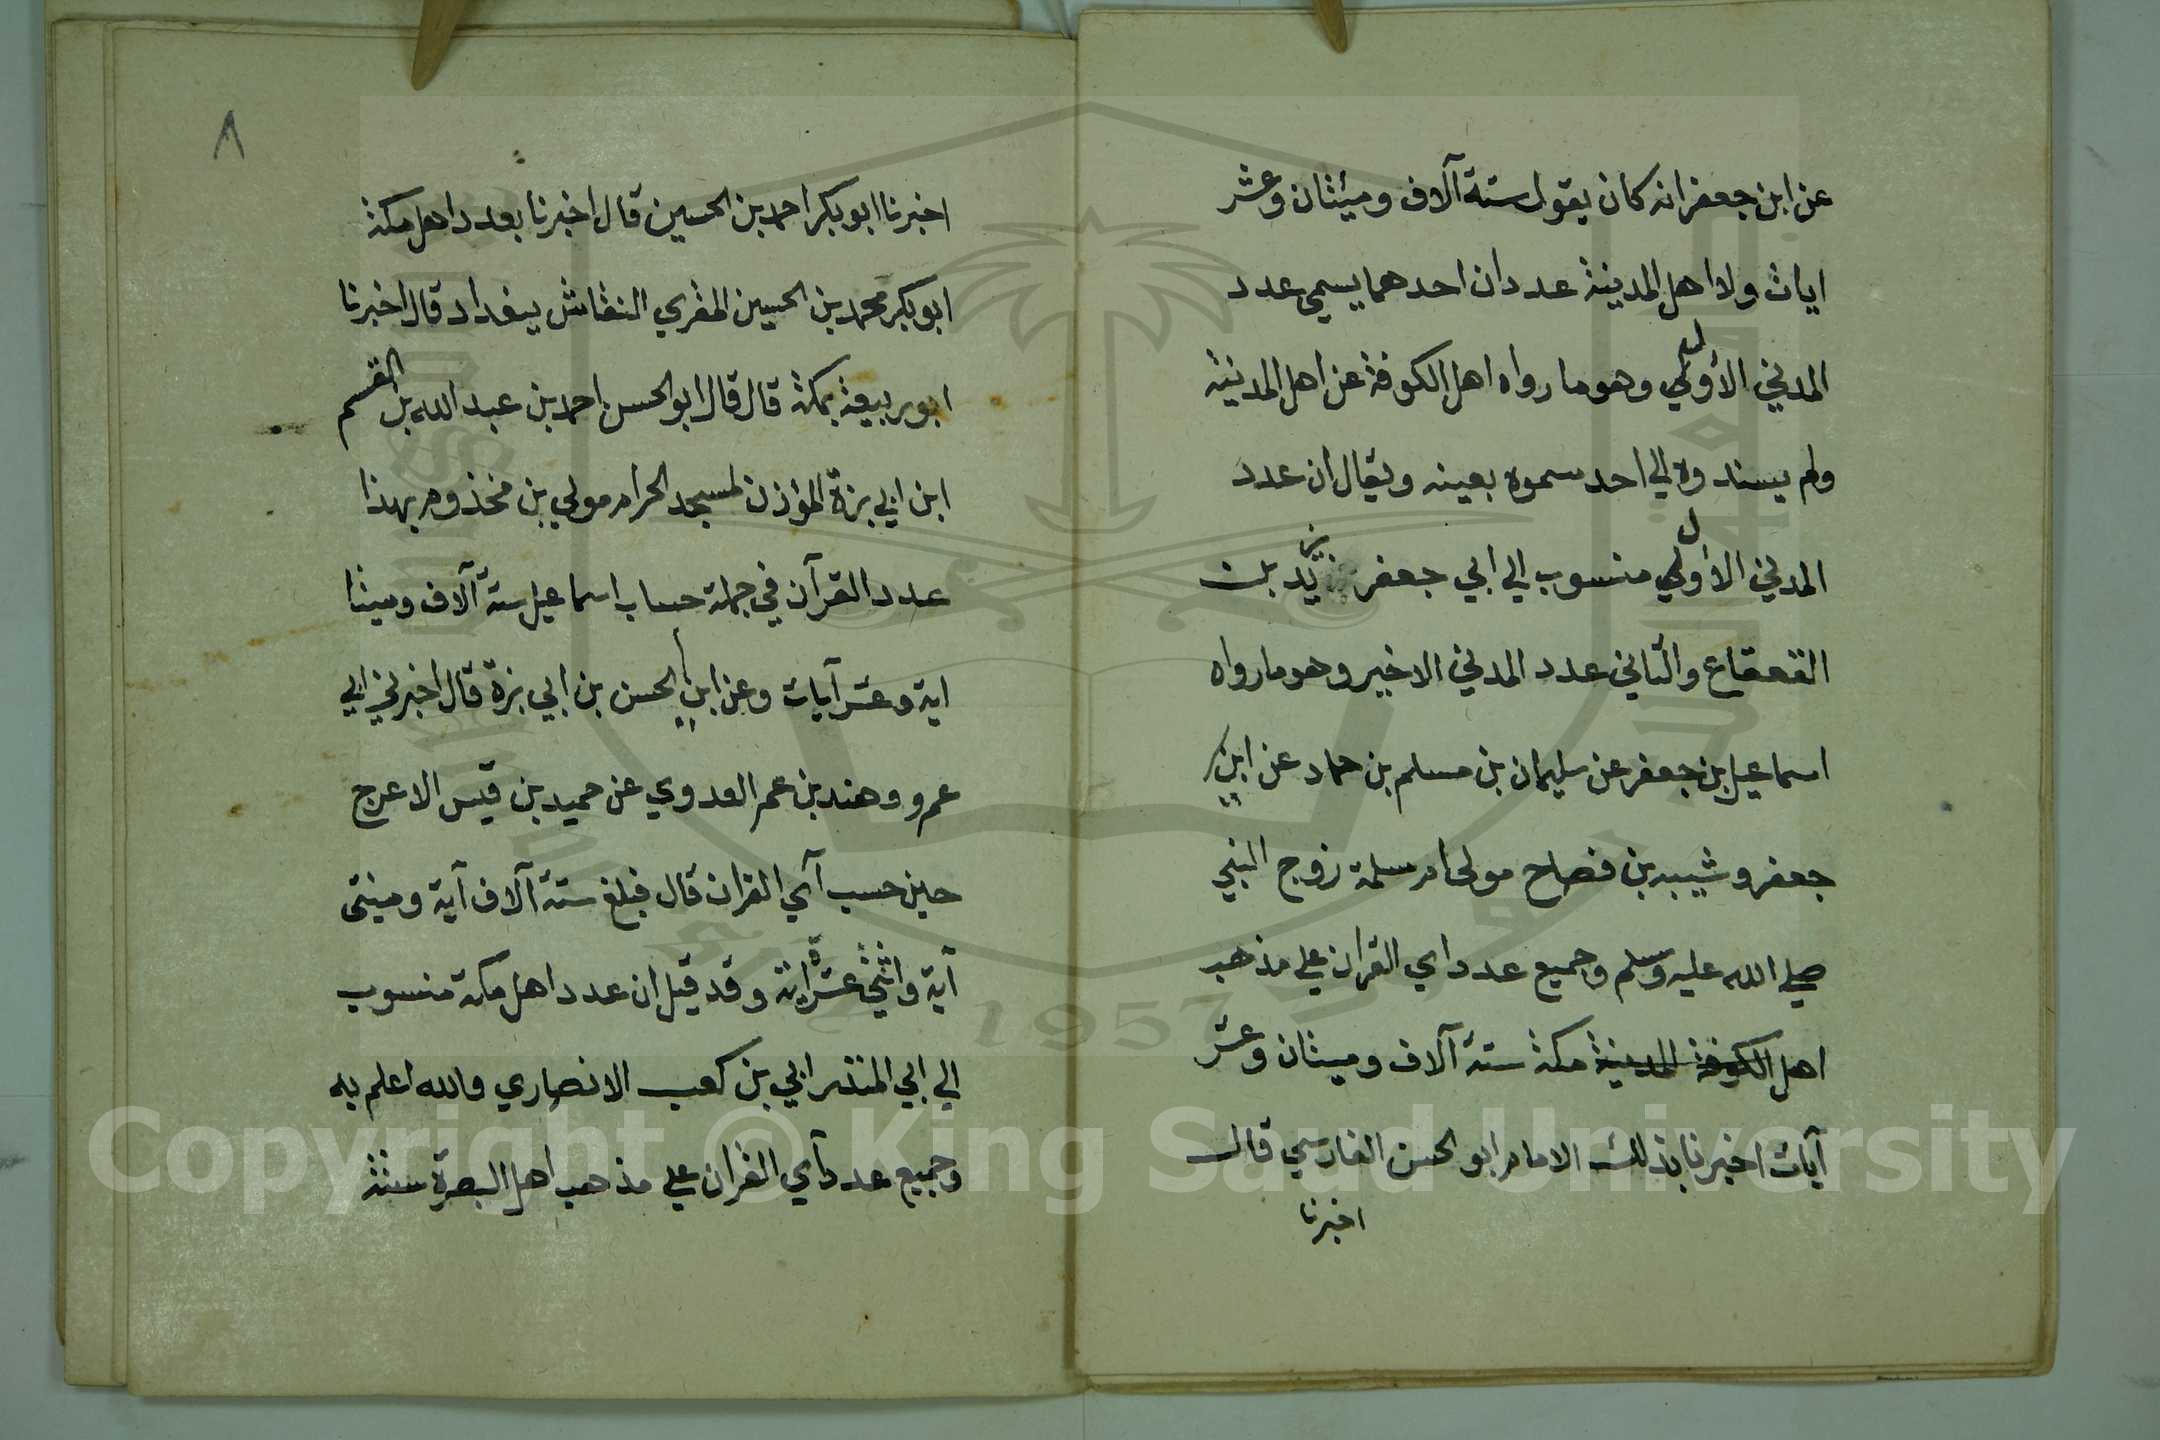 عن ابن جعفر انه كان يقول ستة آلاف وميئتان وعشر
ايات ولاهل المدينة عددان احدهما يسمي عدد
المدني الأولي وهو ما رواه اهل الكوفة عن اهل المدينة
ولم يسندوه الي احد سموه بعينه ويقال ان عدد
المدني الأولي منسوب الي ابي جعفر يزيد بن
القعقاع والثاني عدد المدني الاخير وهو ما رواه
اسماعيل بن جعفر عن سليمان بن مسلم بن حماد عن ابي
جعفر وشيبه بن فصاح مولى ام سلمة زوج النبي
صلي الله عليه وسلم وجميع عدد اي القران علي مذهب
اهل الكوفة المدينة مكة ستة آلاف وميتان وعشر
آيات اخبرنا بذلك الامام ابو الحسن الفارسي قال
اخبرنا
٨
اخبرنا ابو بكر احمد بن الحسين قال اخبرنا بعدد اهل مكة
ابو بكر محمد بن الحسين المقري النقاش ببغداد قال اخبرنا
ابو ربيعة بمكة قال قال ابو الحسن احمد بن عبد الله بن القسم
ابن ابي بزة المؤذن لمسجد الحرام مولي بن مخذوم بهذا
عدد القرآن في جملة حساب اسماعيل ستة آلاف وميتا
اية وعشر آيات وعن ابي الحسن بن ابي بزة قال اخبرني ابي
عمرو وهند بن عمر العدوي عن حميد بن قيس الاعرج
حين حسب آي القران قال فبلغ ستة آلاف آية وميتى
آية واثني عشرة اية وقد قيل ان عدد اهل مكة منسوب
الي ابي المنذر ابي بن كعب الانصاري والله اعلم به
وجميع عدد آي القران علي مذهب اهل البصرة ستة
1957
Copyright © King Saud University